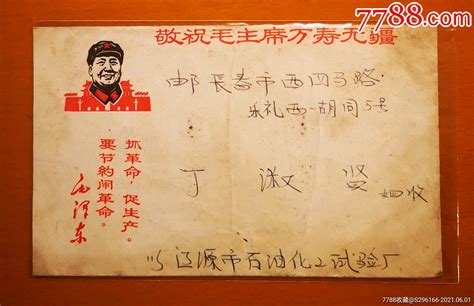 7788.com
敬祝毛主席万寿无疆
邮 长春市西四马路
永礼西一胡同5号
抓革命,促生产。
要节约闹革命。
毛泽东
丁 淑 贤 收
辽源市石油化工试验厂
7788收藏@S296166-2021.06.01